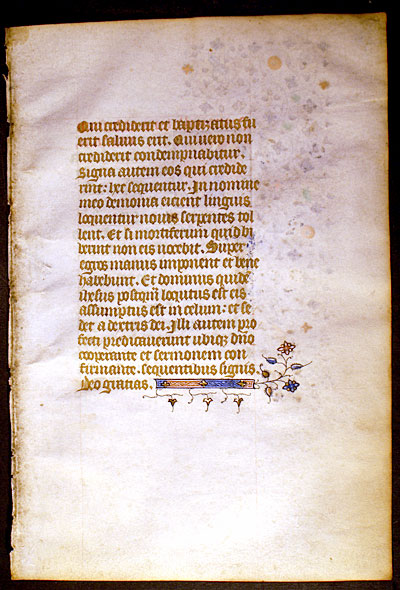 Qui crediderit et baptizatus fu
erit saluus erit. Qui uero non
crediderit condempnabitur.
Signa autem eos qui credide
rint: hec sequentur. In nomine
meo demonia eicient linguis
loquentur nouis serpentes tol
lent. Et si mortiferum quid bi
berint non eis nocebit. Super
egros manus imponent et bene
habebunt. Et dominus quidē
ihesus postqm̄ loquutus est eis
assumptus est in celum: et se
det a dextris dei. Illi autem pro
fecti predicauerunt ubiqz dn̄o
cooperante et sermonem con
firmante. sequentibus signis.
Deo gratias.